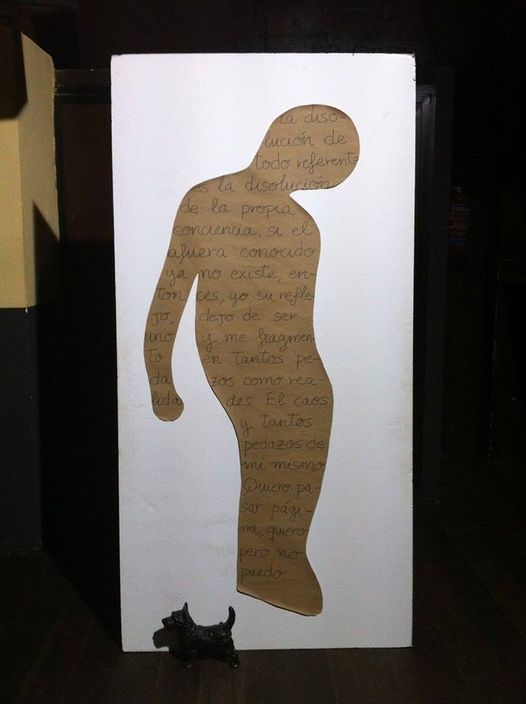 la diso-
lución de
todo referente
es la disolución
de la propia
conciencia, si el
afuera conocido
ya no existe, en-
ton ces, yo, su refle-
jo, dejo de ser
uno y me fragmen-
to en tantos pe-
da zos como rea-
lida des. El caos
y tantos
pedazos de
mi mismo
Quiero pa-
sar pági-
na, quiero
pero no
puedo